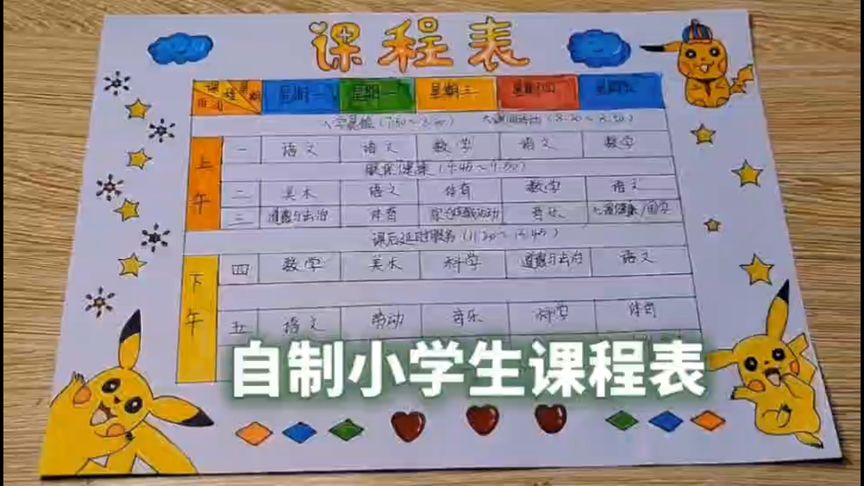 课程表
课程 星期
星期一 星期二 星期三 星期四 星期五
入学晨检（7:50～8:20） 大课间活动（8:20～8:50）
上午
一 语文 语文 数学 语文 数学
眼保健康
二 美术 语文 体育 数学 语文
三 道德与法治 体育 音乐
课后延时服务
下午
四 数学 美术 科学 道德与法治 语文
五 语文 劳动 音乐 科学 体育
自制小学生课程表